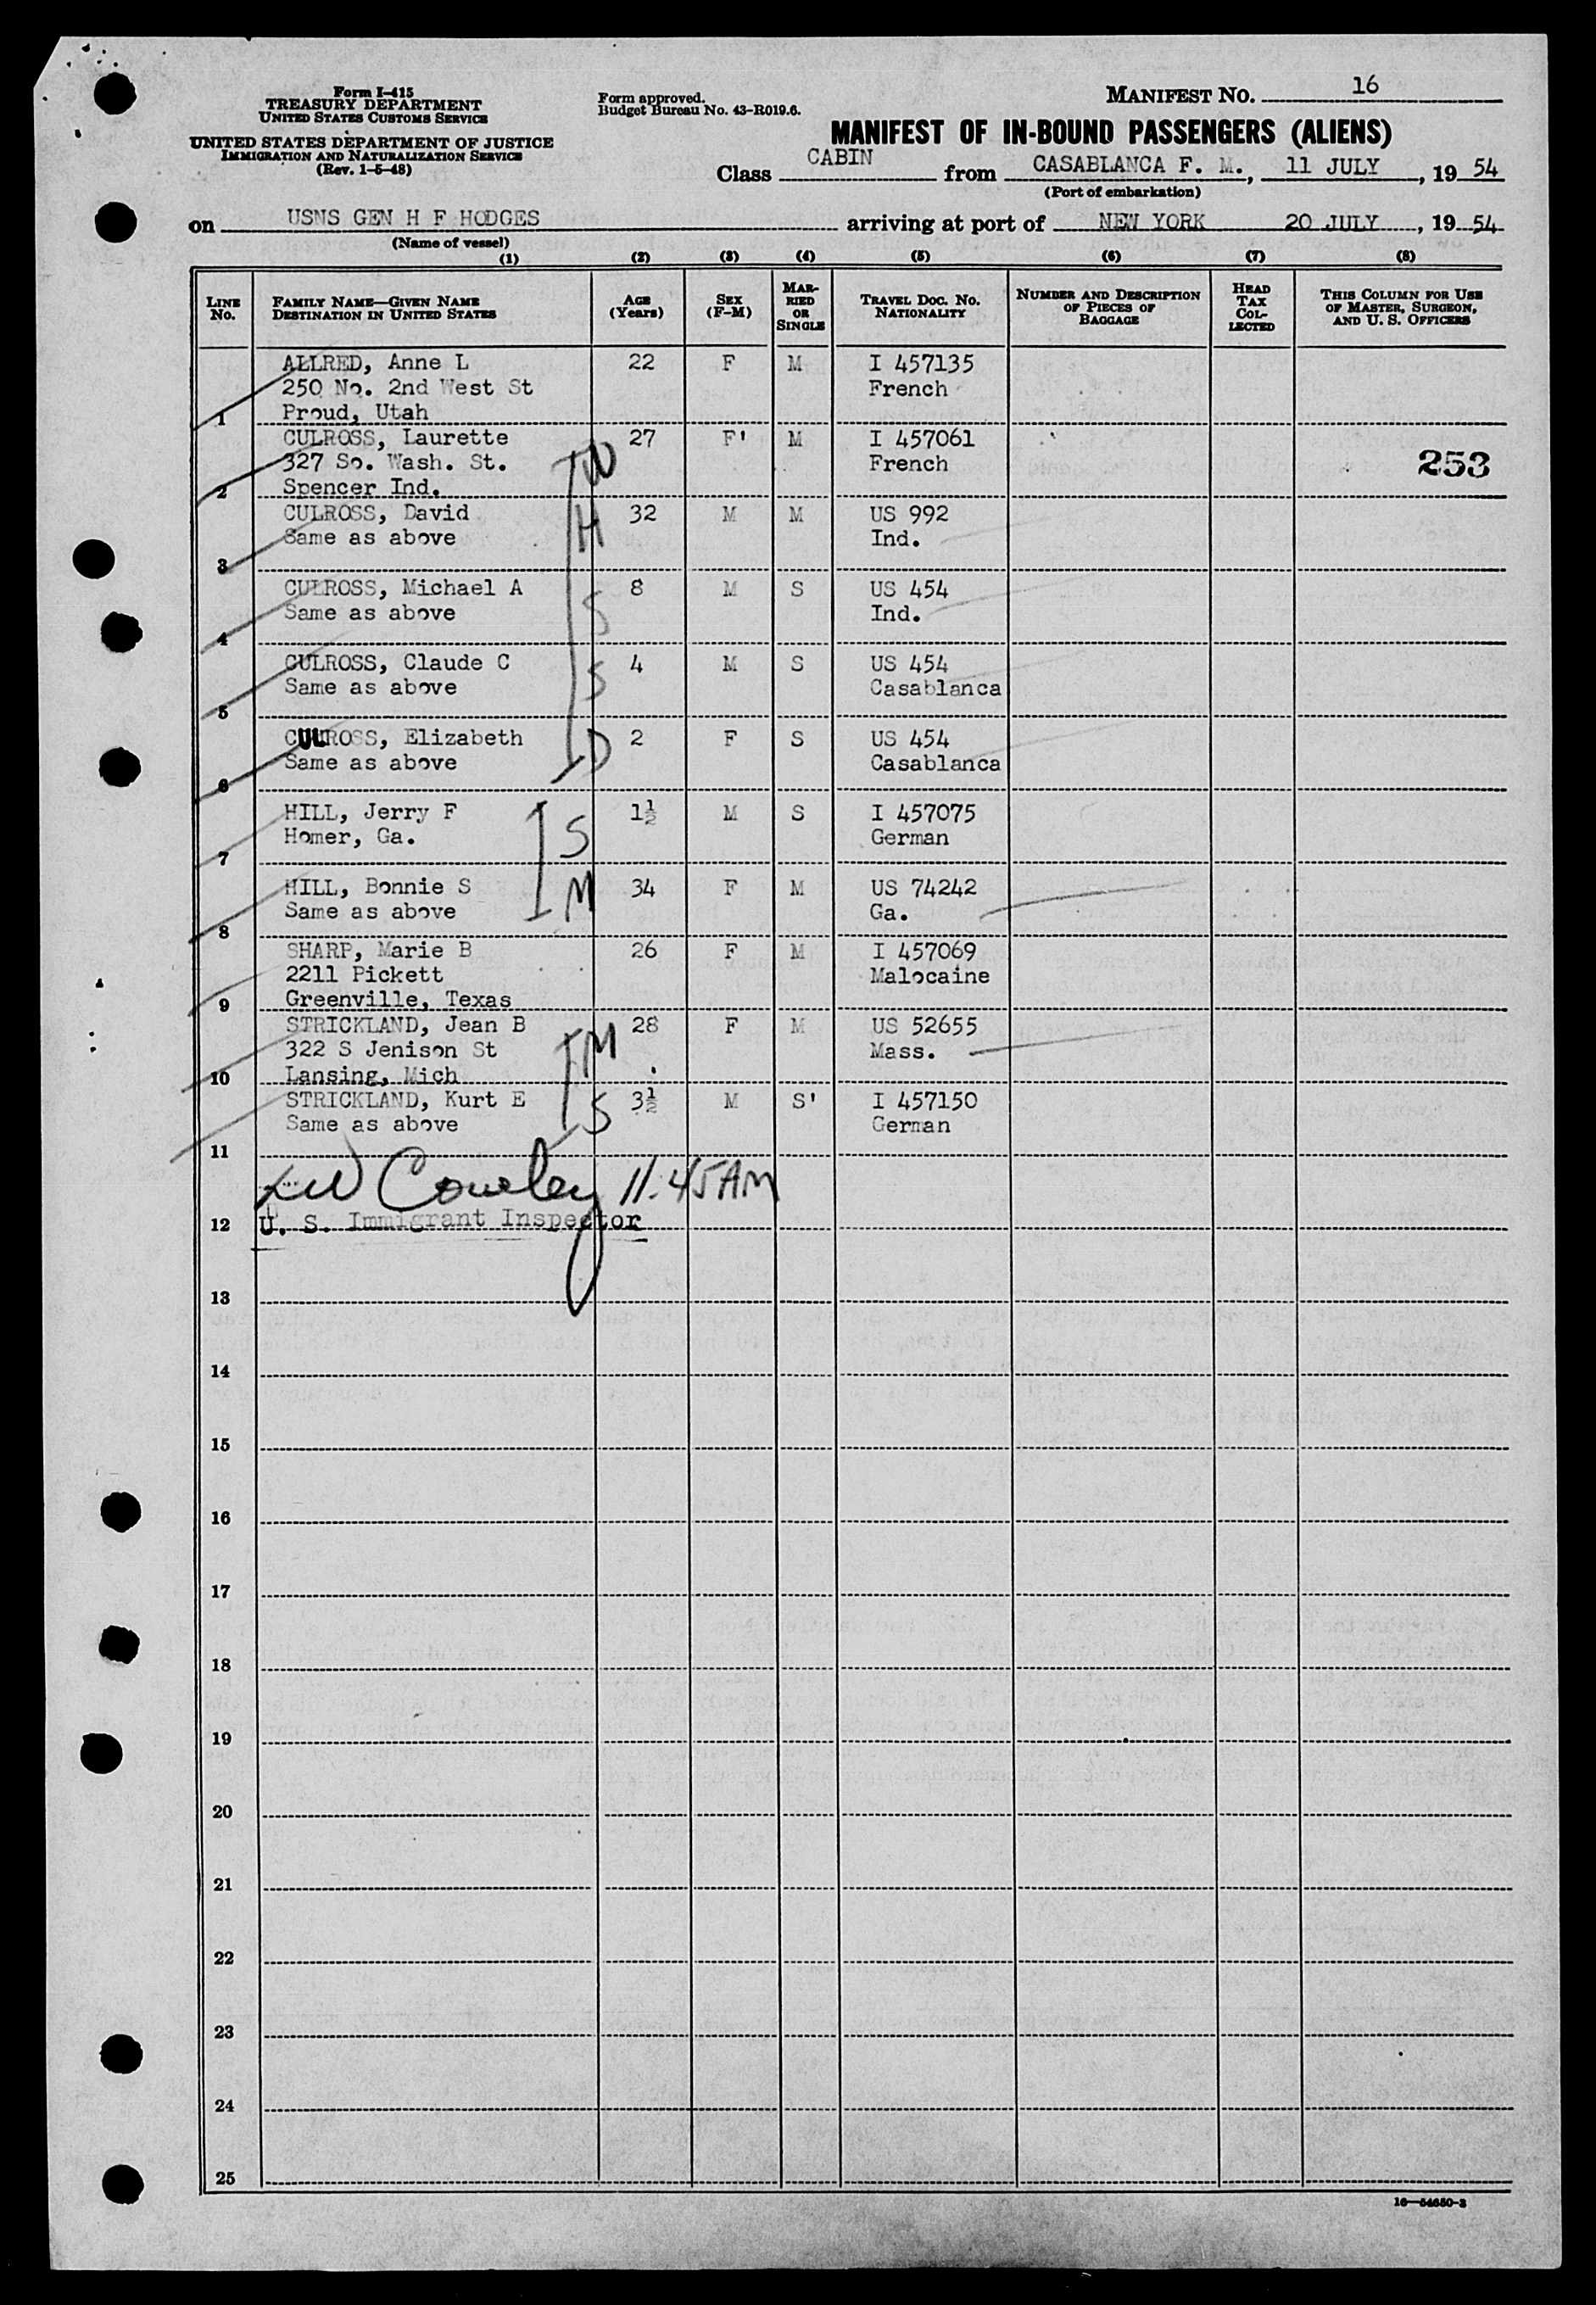 Form I-415
TREASURY DEPARTMENT
UNITED STATES CUSTOMS SERVICE
UNITED STATES DEPARTMENT OF JUSTICE
IMMIGRATION AND NATURALIZATION SERVICE
(Rev. 1-5-48)
Form approved.
Budget Bureau No. 43-R019.6.
MANIFEST NO. 16
MANIFEST OF IN-BOUND PASSENGERS (ALIENS)
Class CABIN from CASABLANCA F. M., 11 JULY, 19 54
(Port of embarkation)
on USNS GEN H F HODGES arriving at port of NEW YORK 20 JULY, 19 54
(Name of vessel)
(1) (2) (3) (4) (5) (6) (7) (8)
LINE NO. FAMILY NAME—GIVEN NAME DESTINATION IN UNITED STATES AGE (Years) SEX (F-M) MARRIED OR SINGLE TRAVEL DOC. NO. NATIONALITY NUMBER AND DESCRIPTION OF PIECES OF BAGGAGE HEAD TAX COLLECTED THIS COLUMN FOR USE OF MASTER, SURGEON, AND U. S. OFFICERS
ALLRED, Anne L 22 F M I 457135
250 No. 2nd West St French
1 Proud, Utah
CULROSS, Laurette 27 F' M I 457061
327 So. Wash. St. W French 253
2 Spencer Ind.
CULROSS, David H 32 M M US 992
Same as above Ind.
3
CULROSS, Michael A 8 M S US 454
Same as above S Ind.
4
CULROSS, Claude C 4 M S US 454
Same as above S Casablanca
5
CULROSS, Elizabeth D 2 F S US 454
Same as above Casablanca
6
HILL, Jerry F 1½ M S I 457075
Homer, Ga. S German
7
HILL, Bonnie S M 34 F M US 74242
Same as above Ga.
8
SHARP, Marie B 26 F M I 457069
2211 Pickett Malocaine
9 Greenville, Texas
STRICKLAND, Jean B 28 F M US 52655
322 S Jenison St M Mass.
10 Lansing, Mich
STRICKLAND, Kurt E S 3½ M S' I 457150
Same as above German
11
Cowley 11.45AM
12 U. S. Immigrant Inspector
13
14
15
16
17
18
19
20
21
22
23
24
25
16—54650-2